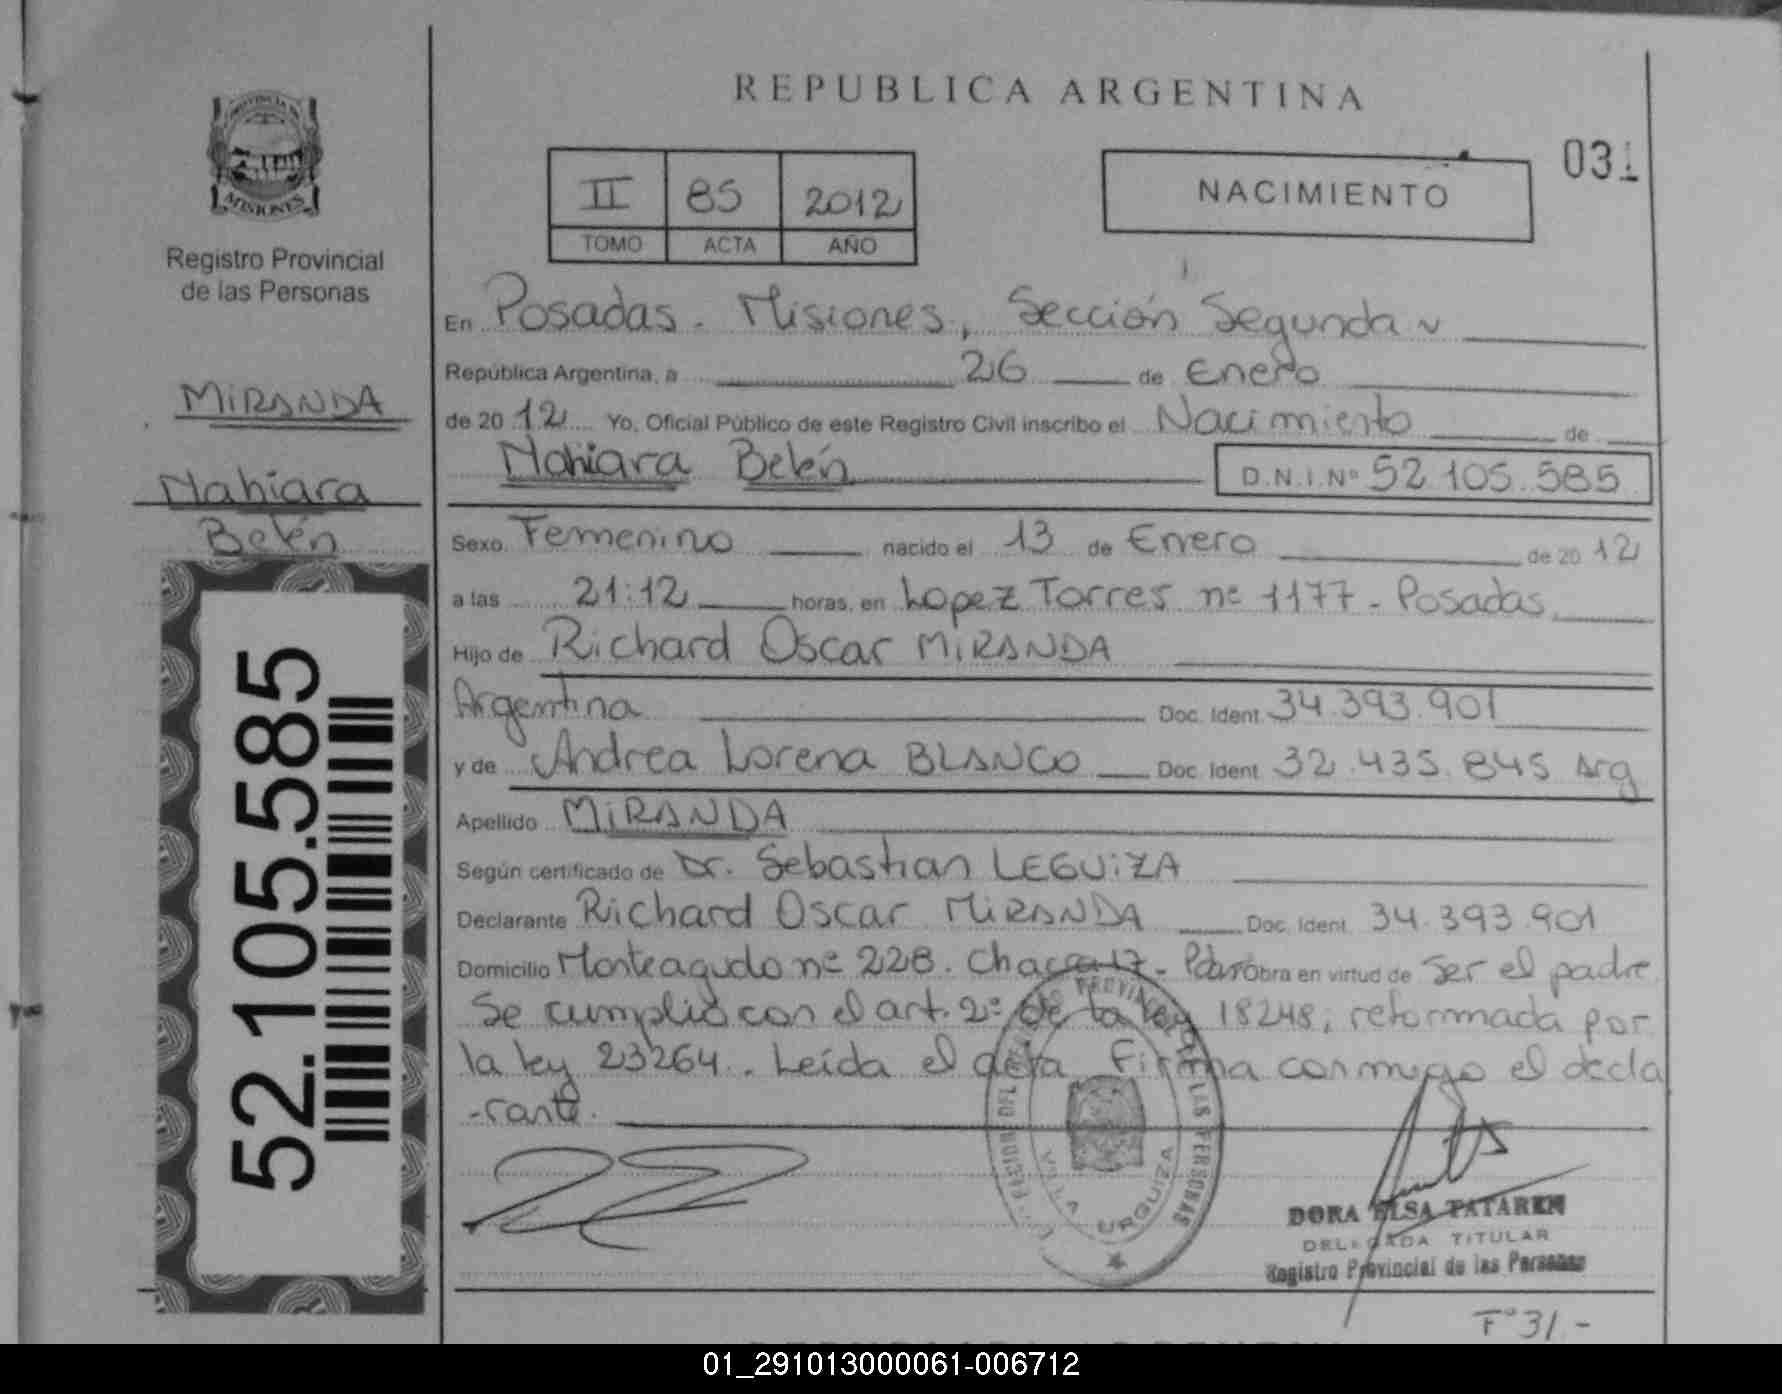 REPUBLICA ARGENTINA
PROVINCIA DE
MISIONES
Registro Provincial
de las Personas
II 85 2012
TOMO ACTA AÑO
NACIMIENTO
031
MIRANDA
Nahiara
Belén
52.105.585
En Posadas - Misiones, Sección Segunda
República Argentina, a 26 de Enero
de 2012 Yo, Oficial Público de este Registro Civil inscribo el Nacimiento de
Nahiara Belén D.N.I.Nº 52.105.585
Sexo Femenino nacido el 13 de Enero de 2012
a las 21:12 horas, en Lopez Torres nº 1177 - Posadas
Hijo de Richard Oscar MIRANDA
Argentina Doc. Ident. 34.393.901
y de Andrea Lorena BLANCO Doc. Ident. 32.435.845 Arg
Apellido MIRANDA
Según certificado de Dr. Sebastian LEGUIZA
Declarante Richard Oscar MIRANDA Doc. Ident. 34.393.901
Domicilio Monteagudo nº 228. Chacra 17 - Obra en virtud de Ser el padre
Se cumplió con el art. 2º de la ley 18248, reformada por
la ley 23264. Leída el acta Firma conmigo el decla
-rante.
PROVINCIAL DE LAS PERSONAS
VILLA URQUIZA
DORA ELSA TATAREN
DELEGADA TITULAR
Registro Provincial de las Personas
Fº 31 -
01_291013000061-006712